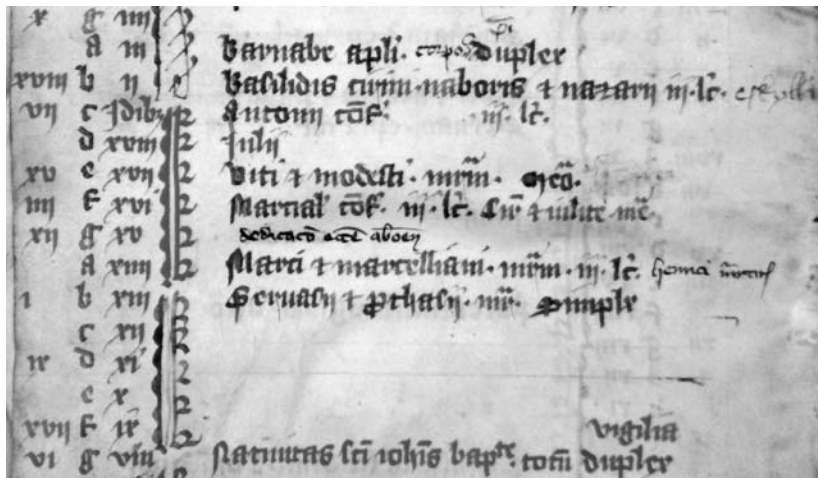 x g iiij
a iij Barnabe apli. duplex
xviii b ij Basilidis cirini. naboris & nazarii iij. lc. eskylli
vij c Idib' Antonii cōf. iij. lc.
d xviij Julii
xv e xvij Viti & modesti. mrm. 
iiij f xvi Marcial' cōf. iij. lc.
xij g xv dedicacō ecce aboen
a xiiij Marci & marcelliani. mrm. iij. lc. henrici
i b xiij Geruasii & Prothasij. mr. Simplex
c xij
ix d xi
e x
xvij f ix vigilia
vi g viij Natiuitas sci iohis bapte. totū duplex